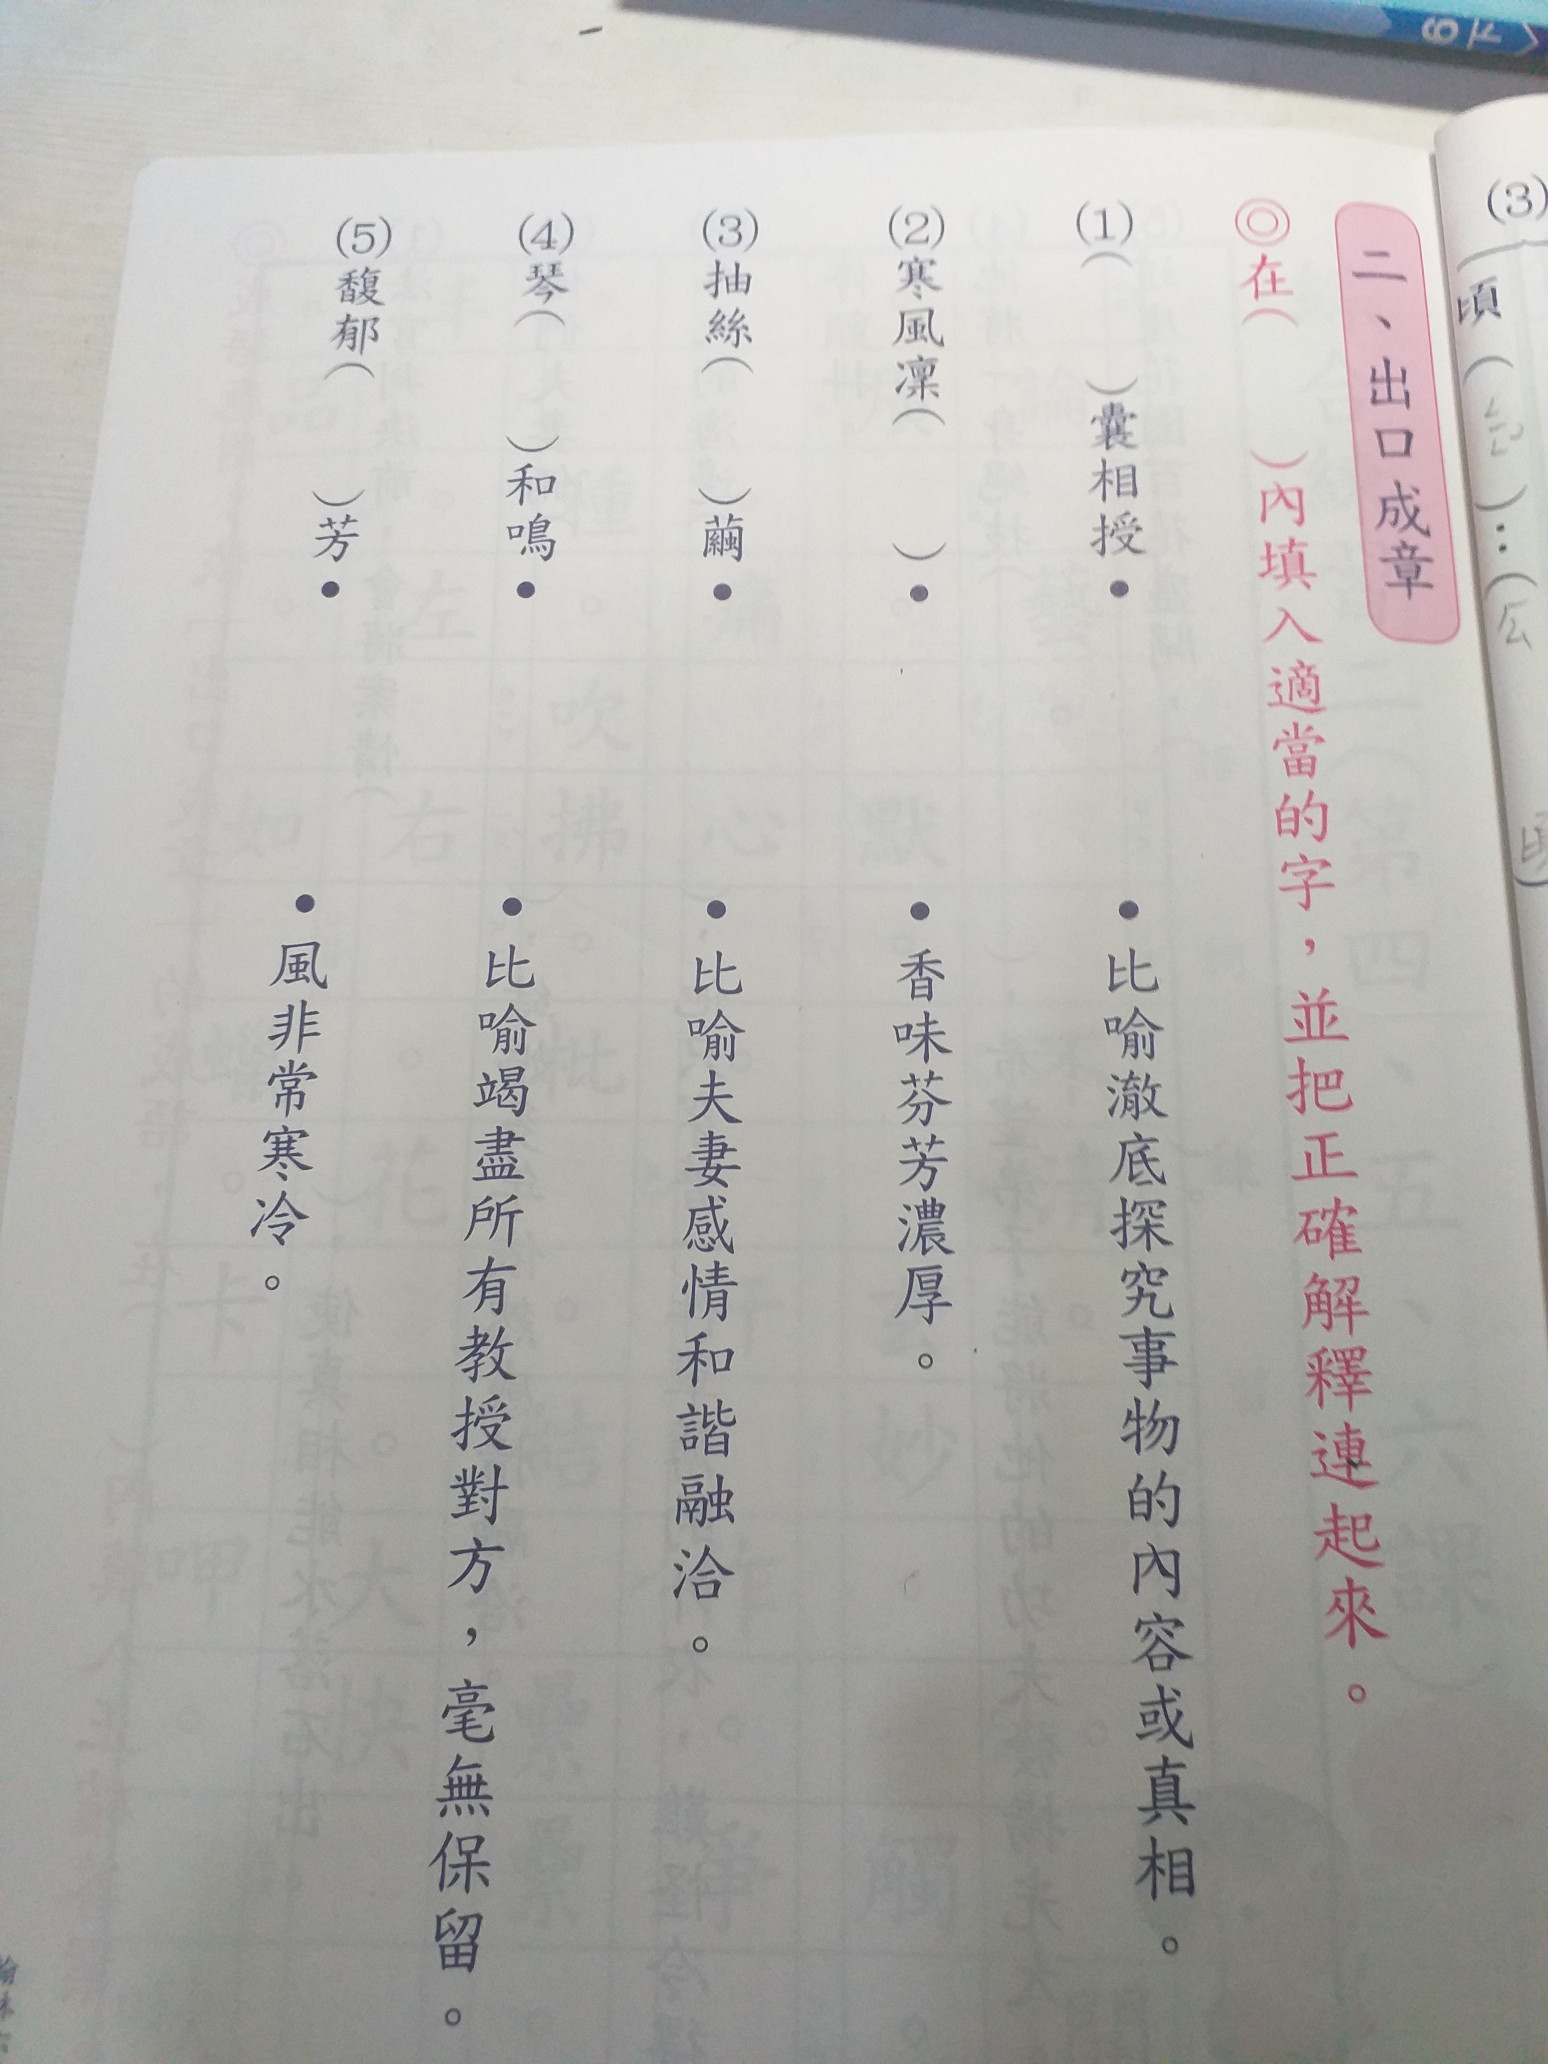 二、出口成章
◎在(　　)內填入適當的字，並把正確解釋連起來。
(1)(　　)囊相授•　•比喻澈底探究事物的內容或真相。
(2)寒風凜(　　)•　•香味芬芳濃厚。
(3)抽絲(　　)繭•　•比喻夫妻感情和諧融洽。
(4)琴(　　)和鳴•　•比喻竭盡所有教授對方，毫無保留。
(5)馥郁(　　)芳•　•風非常寒冷。
(3)
頃(
6下